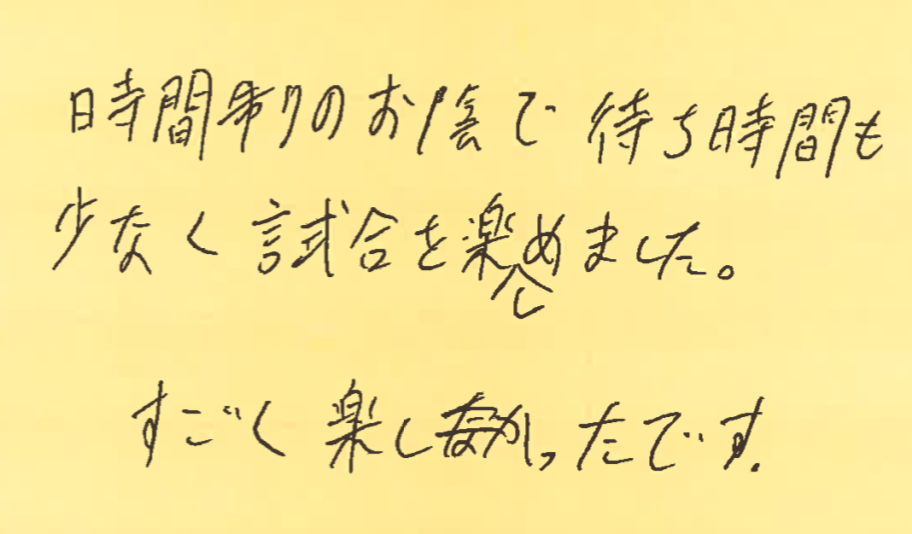 時間制のお陰で 待ち時間も
少なく 試合を楽しめました。
すごく 楽しかったです.